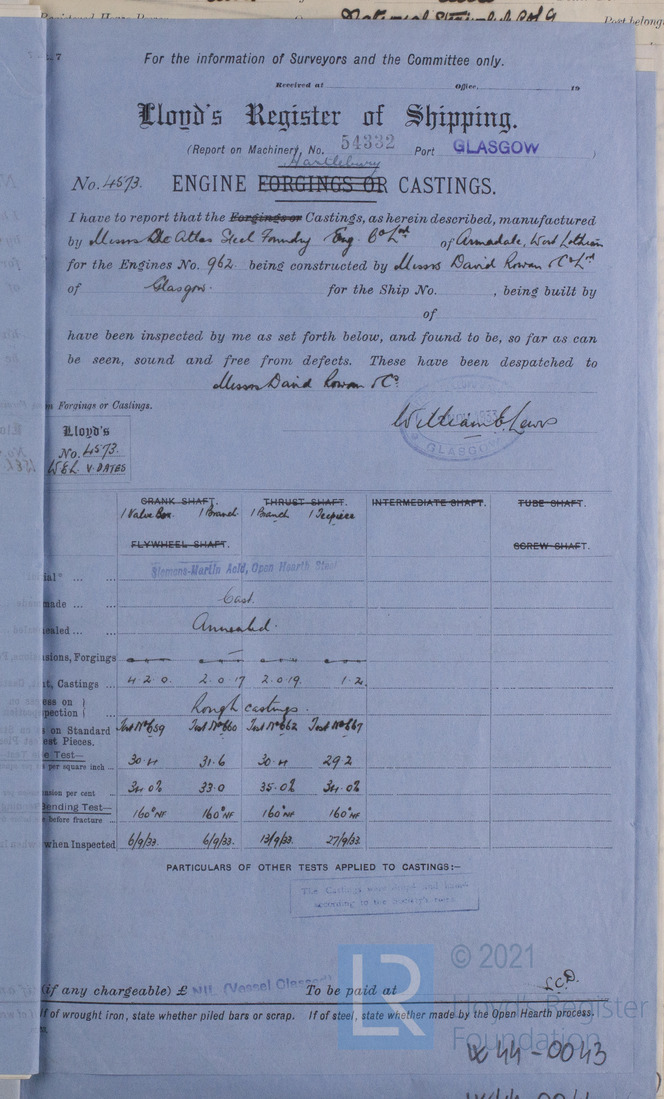 National Steamship Co Ld
Port belong
7
For the information of Surveyors and the Committee only.
Received at Office, 19
Lloyd's Register of Shipping.
(Report on Machinery, No. 54332 Port GLASGOW )
Hartlebury
No. 4573. ENGINE FORGINGS OR CASTINGS.
I have to report that the Forgings or Castings, as herein described, manufactured
by Messrs The Atlas Steel Foundry & Eng. Co Ld of Armadale, West Lothian
for the Engines No. 962 being constructed by Messrs David Rowan & Co Ld
of Glasgow. for the Ship No. , being built by
of
have been inspected by me as set forth below, and found to be, so far as can
be seen, sound and free from defects. These have been despatched to
Messrs David Rowan & Co
n Forgings or Castings.
William E. Laws
GLASGOW
Lloyd's
No. 4573.
W.E.L. V. DATES
CRANK SHAFT. THRUST SHAFT. INTERMEDIATE SHAFT. TUBE SHAFT.
1 Valve Box. 1 Branch 1 Branch 1 Teepiece
FLYWHEEL SHAFT. SCREW SHAFT.
Siemens-Martin Acid, Open Hearth Steel
ial* ... ...
made ... ... Cast.
ealed ... ... Annealed.
sions, Forgings
t, Castings ... 4.2.0. 2.0.17 2.0.19. 1.2.
ess on }
pection } ... Rough castings.
s on Standard Test No 659 Test No 660 Test No 662 Test No 667
est Pieces.
e Test—
s per square inch ... 30.4 31.6 30.4 29.2
nsion per cent ... 34.0% 33.0 35.0% 34.0%
ending Test—
before fracture ... 160° NF 160° NF 160° NF 160° NF
when Inspected 6/9/33. 6/9/33. 13/9/33. 27/9/33.
PARTICULARS OF OTHER TESTS APPLIED TO CASTINGS:—
The Castings were
according to the Society's rules.
(if any chargeable) £ NIL (Vessel Classed) To be paid at
L.C.D.
if of wrought iron, state whether piled bars or scrap. If of steel, state whether made by the Open Hearth process.
© 2021
LR
Lloyd's Register
Foundation
W44-0043